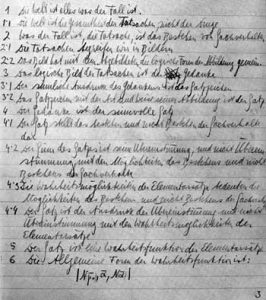 1 Die Welt ist alles was der Fall ist.
1.1 Die Welt ist die Gesamtheit der Tatsachen, nicht der Dinge
2 Was der Fall ist, die Tatsache, ist das Bestehen von Sachverhalten
2.1 Die Tatsachen begreifen wir in Bildern
2.2 Das Bild hat mit dem Abgebildeten die logische Form der Abbildung gemein.
3 Das logische Bild der Tatsachen ist der Gedanke
3.1 Der sinnliche Ausdruck des Gedankens ist das Satzzeichen
3.2 Das Satzzeichen mit der Art und Weise seiner Abbildung ist der Satz
4 Der Gedanke ist der sinnvolle Satz
4.1 Der Satz stellt das Bestehen und nicht Bestehen der Sachverhalte
dar
4.2 Der Sinn des Satzes ist seine Übereinstimmung, und nicht Überein-
stimmung, mit den Möglichkeiten des Bestehens und nicht
Bestehens der Sachverhalte
4.3 Die Wahrheitsmöglichkeiten der Elementarsätze bedeuten die
Möglichkeiten des Bestehens und nicht Bestehens der Sachverh.
4.4 Der Satz ist der Ausdruck der Übereinstimmung und nicht
Übereinstimmung mit den Wahrheitsmöglichkeiten der
Elementarsätze
5 Der Satz ist eine Wahrheitsfunktion der Elementarsätze
6 Die Allgemeine Form der Wahrheitsfunktion ist:
3